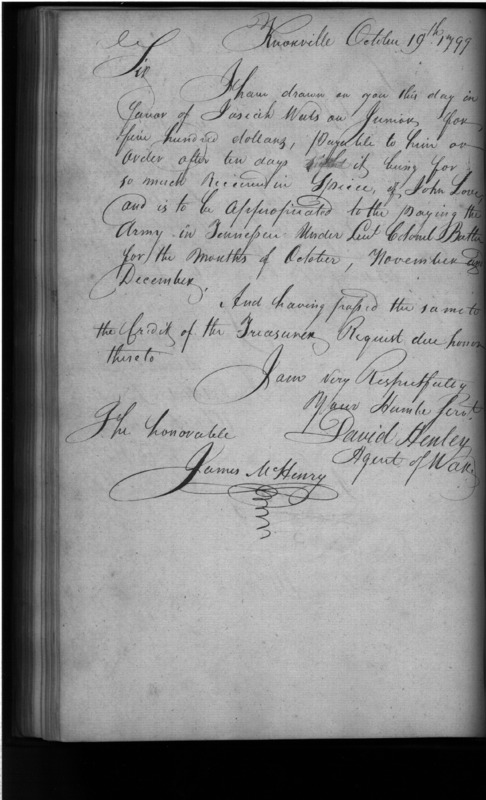 Knoxville October 19th 1799
Sir
I have drawn on you this day in
favor of Josiah Watson Junior for
five hundred dollars, payable to him or
order after ten days it being for
so much Received in Speice, of John Love,
and is to be Appropriated to the paying the
Army in Tennessee Under Lieut Colonel Butler
for the Months of October, November and
December,
And having passed the same to
the Credit of the Treasurer Request due honor
thereto
I am very Respectfully
Your Humble Servt.
David Henley
Agent of War
The honorable
James McHenry